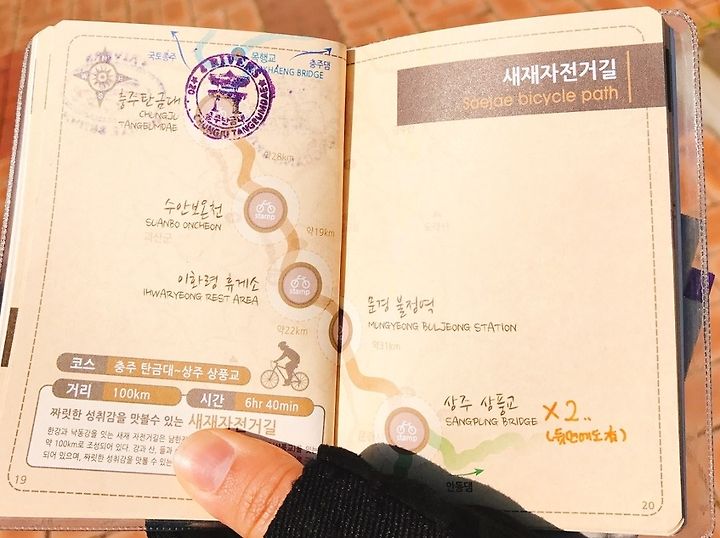 국토종주
목행교
충주댐
KHAENG BRIDGE
4 RIVERS
충주탄금대
CHUNGJU TANGEUMDAE
충주탄금대
CHUNGJU
TANGEUMDAE
약28km
수안보온천
SUANBO ONCHEON
stamp
괴산군
약19km
이화령 휴게소
IHWARYEONG REST AREA
stamp
약22km
코스 충주 탄금대~상주 상풍교
거리 100km 시간 6hr 40min
짜릿한 성취감을 맛볼수 있는 새재자전거길
한강과 낙동강을 잇는 새재 자전거길은 남한
약 100km로 조성되어 있다. 강과 산, 들과
되어 있으며, 짜릿한 성취감을 맛볼 수 있는
19
새재자전거길
Saejae bicycle path
문경 불정역
MUNGYEONG BULJEONG STATION
약31km
상주 상풍교
SANGPUNG BRIDGE
X2..
stamp
안동댐
20